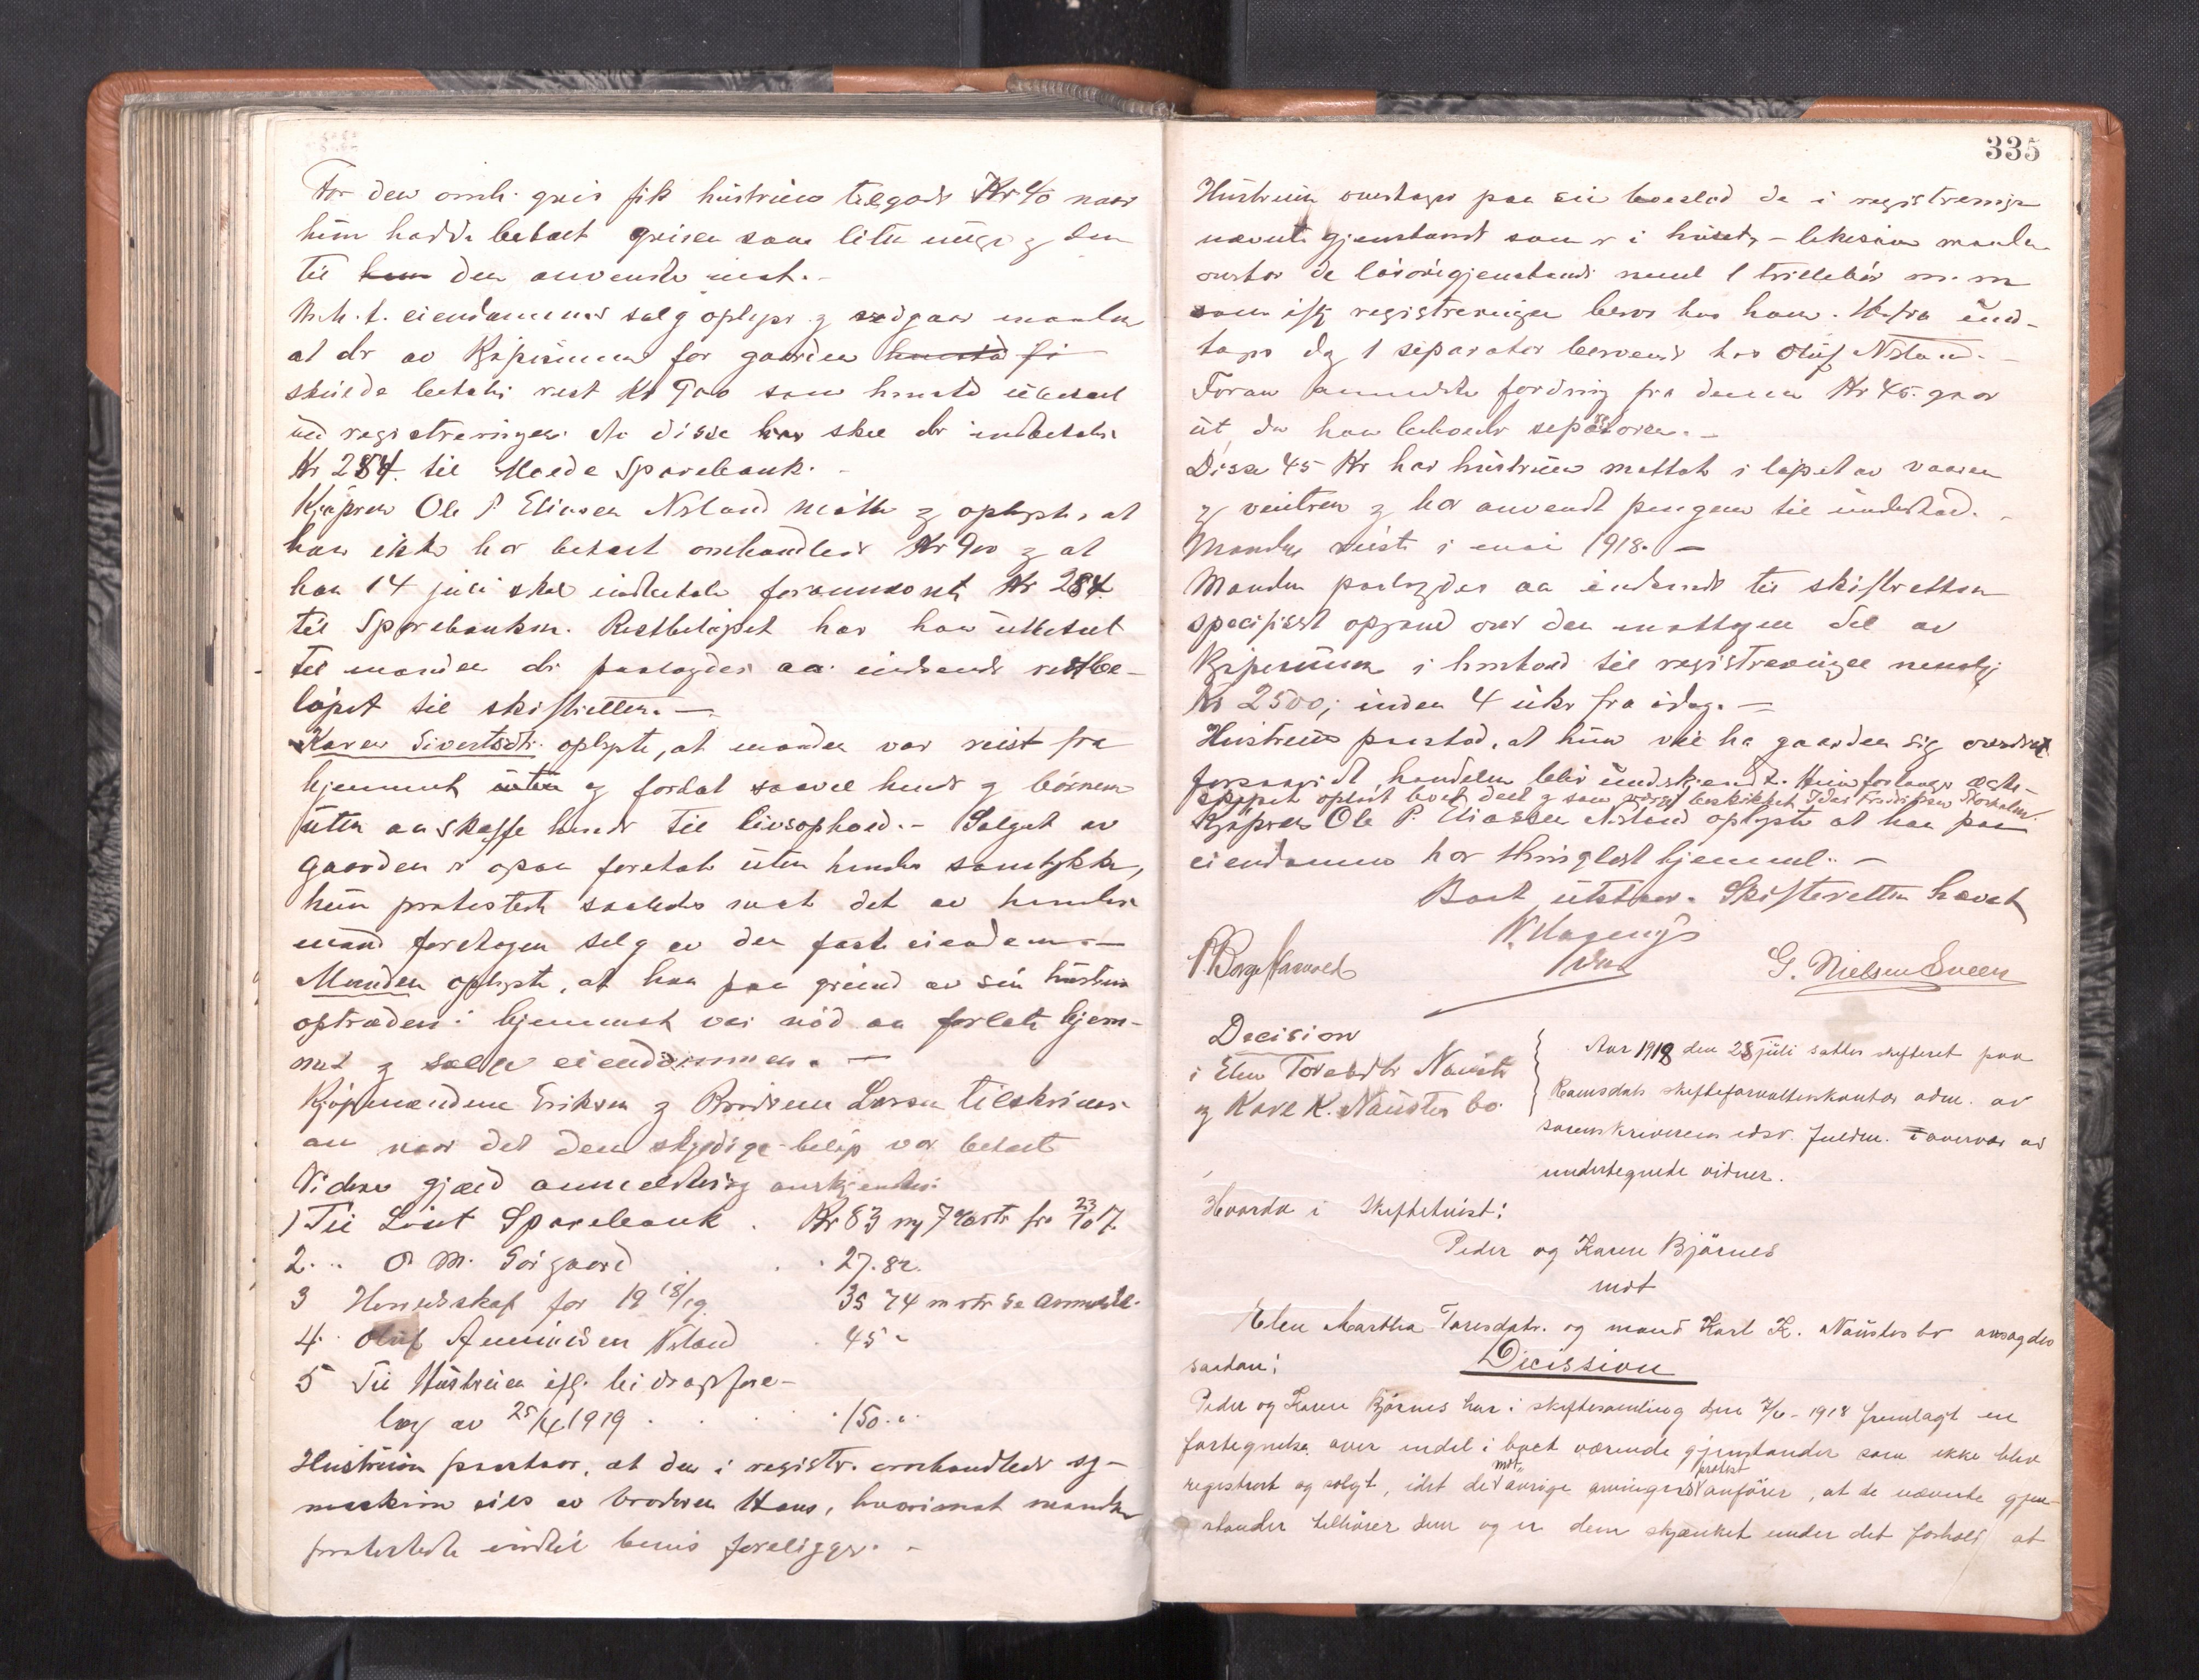 For den omh. gris fik hustruen tilgode Kr 40 naar
hun hadde betalt grisen som liten unge og den
til den anvendte mat.-
M.h.t. eiendommens salg oplyser og vedgaar manden
at der av kjøpesummen for gaarden
skulde betales rest Kr 900 som henstod ubetalt
ved registreringen. Av disse skal der indbetales
Kr 284 til Sparebank.-
Kjøperen Ole P Eliasen Nsland møtte og oplyste, at
han ikke har betalt omhandlede Kr 900 og at
han 14 juli skal indbetale forannævnte Kr 284
til Sparebanken. Restbeløpet har han utbetalt
til manden der paalagdes aa indsende restbe-
løpet til skifteretten.-
Karen Sivertsdtr. oplyste, at manden var reist fra
hjemmet og forlat saavel hende og børnene
uten aa skaffe hende til livsophold.- Salget av
gaarden er ogsaa foretat uten hendes samtykke,
hun protesterte saaledes mot det av hendes
mand foretagen salg av den faste eiendom.-
Manden oplyste, at han paa grund av sin hustrus
optræden i hjemmet var nød aa forlate hjem-
met og sælge eiendommen.-
Kjøpmændene Eriksen og Brødrene Larsen tilskrives
om naar det dem skyldige beløp var betalt
Videre gjæld anmeldtes
1) Til Sparebank. Kr 83 m 7 % rtr fra 23/10 17.
2. . O. M. Sørgaard . . 27.82.
3 Herredskat for 19 18/19 35 74 m rtr
4. Oluf Nsland . 45 -
5 Til Hustruen ifl. bidragsfore-
læg av 25/4 1919 . . . . 150..
Hustruen paastaar, at den i registr. omhandlede sy-
maskin eies av broderen Hans, hvorimot manden
protesterte indtil bevis foreligger.-
335
Hustruen overtager paa sin boeslod de i registreringen
nævnte gjenstande som er i huset,- likesom manden
overtar de løsøregjenstande 1 trillebør m.m
som ifl registreringen beros hos ham. Herfra und-
tages dog 1 separator beroende hos Oluf Nsland.-
Foran anmeldte fordring fra denne Kr 45. gaar
ut, da han beholder separatoren.-
Disse 45 Kr har hustruen mottat i løpet av vaaren
og vinteren og har anvendt pengene til underhold.-
Manden reiste i mai 1918.-
Manden paalagdes aa indsende til skifteretten
specifisert opgave over den mottagne del av
kjøpesummen i henhold til registreringen nemlig
Kr 2500; inden 4 uker fra idag.-
Hustruen paastod, at hun vil ha gaarden sig overdrat
forsaavidt handelen blir underkjendt. Hun forlanger ægte-
skapet opløst boet delt og som værge beskikket
Kjøperen Ole P. Eliassen Nsland oplyste at han paa
eiendommen har thinglest hjemmel.-
Boet utstaar. Skifteretten hævet
G. Nielsen Sveen
Decision
i Elen Toresdtr. Naustes
og Karl K. Naustes bo.
Aar 1918 den 28 juli sattes skifteret paa
Romsdals skifteforvalterskontor adm. av
sorenskriverens edsv. fuldm. i overvær av
undertegnede vidner.
Hvorda i Skiftetvist:
Peder og Karen Bjørnes
mot
Elen Martha Toresdatr. og mand Karl K. Naustes bo avsagdes
saadan:
Decission
Peder og Karen Bjørnes har i skiftesamling den 7/6-1918 fremlagt en
fortegnelse over endel i boet værende gjenstander som ikke blev
registrert og solgt, idet de mot øvrige arvingers protest anfører, at de nævnte gjen-
stander tilhører dem og er dem skjænket under det forhold at